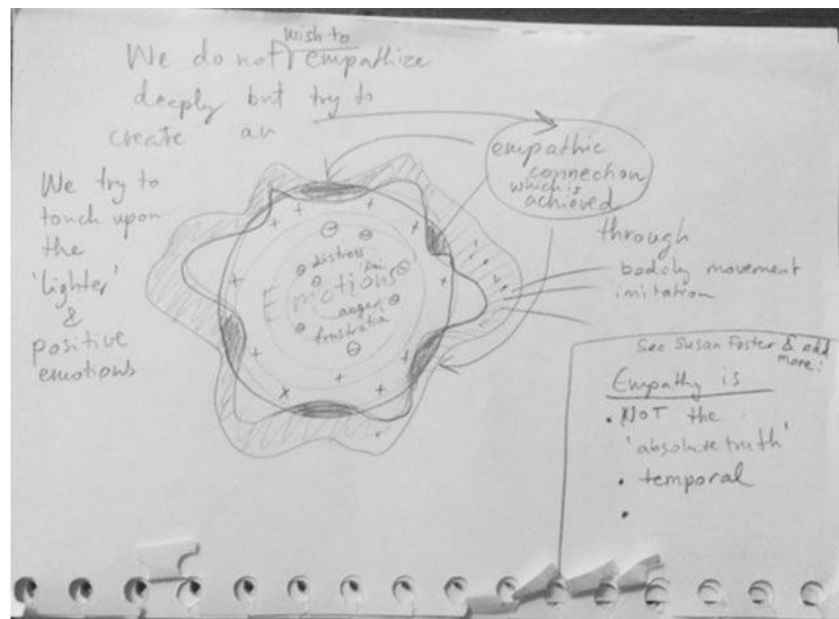 We do not wish to empathize
deeply but try to
create an
empathic
connection
which is
achieved
through
bodily movement
imitation
We try to
touch upon
the
'lighter'
&
positive
emotions
distress
Emotions
anger
frustration
See Susan Foster & add
more!
Empathy is
• NOT the
'absolute truth'
• temporal
•